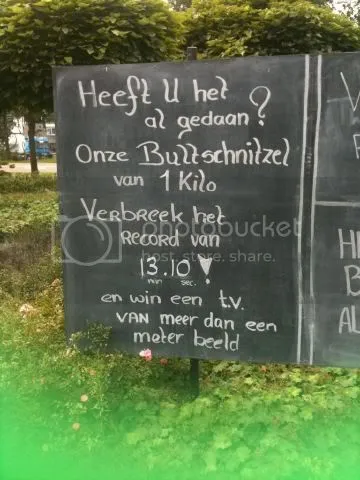 Heeft U het
al gedaan?
Onze Bultschnitzel
van 1 Kilo
Verbreek het
Record van
13.10!
min sec.
en win een t.v.
van meer dan een
meter beeld
photobucket
host. store. share.
H
B
AL